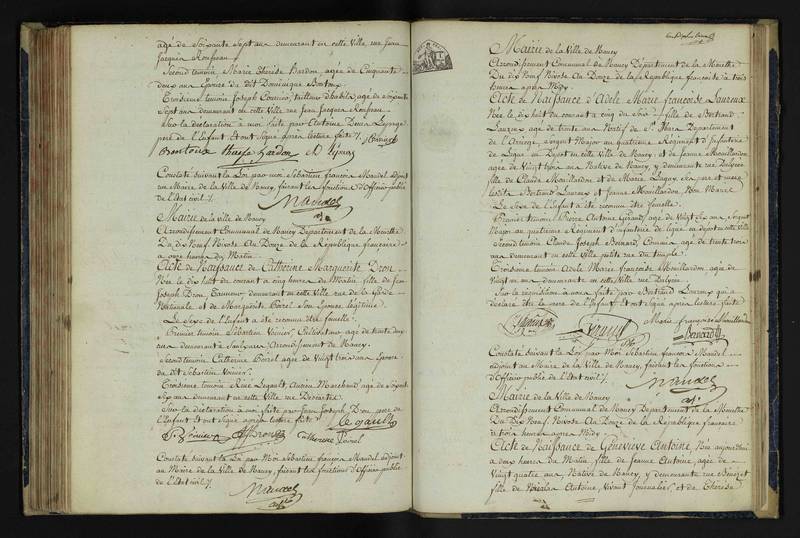 agé de Soixante Sept ans demeurant en cette Ville rue Jean
Jacques Rousseau
Second temoin, Marie Thérèse Bardon, agée de Cinquante
deux ans Epouse du dit Dominique Bontoux
Troisieme temoin Joseph Cournier, tailleur d'habits, agé de Soixante
Sept ans demeurant en cette Ville rue Jean Jacques Rousseau
Sur la déclaration à moi faite par Antoine Denis
pere de l'Enfant Et ont Signé après lecture faite
Bontoux therese bardon
Constaté Suivant la Loi par moi Sébastien françois Mandel adjoint
au Maire de la Ville de Nancy, faisant les fonctions d'Officier public
de l'état civil
Mandel
adj
Mairie de la Ville de Nancy
Arrondissement Communal de Nancy Département de la Meurthe
Du dix Neuf Nivose An Douze de la République française
a onze heures du Matin
Acte de Naissance de Catherine Marguerite Dron
Née le dix huit du courant a cinq heures du Matin, fille de Jean
Joseph Dron, demeurant en cette Ville rue de la
Nationale et de Marguerite Poirel son Epouse légitime
Le Sexe de l'Enfant a été reconnu être femelle
Premier temoin Sébastien Voinier, Cultivateur agé de trente deux
ans demeurant à Arrondissement de Nancy
Second temoin Catherine Poirel agée de Vingt trois ans Epouse
du dit Sébastien Voinier
Troisieme temoin René Legault, Ancien Marchand, agé de Soixante
Six ans demeurant en cette Ville rue Descartes
Sur la déclaration à moi faite par Jean Joseph Dron pere de
l'Enfant Et ont Signé après lecture faite Le gault
Catherine Poirel
Constaté Suivant la Loi par Moi Sébastien françois Mandel, adjoint
au Maire de la Ville de Nancy, faisant les fonctions d'Officier public
de l'Etat civil
Mandel
adj
Mairie de la Ville de Nancy
Arrondissement Communal de Nancy Département de la Meurthe
Du dix Neuf Nivose An Douze de la République françoise à trois
heures après Midy
Acte de Naissance d'Adele Marie françoise Laureux
Née le dix huit du courant a cinq du Soir fille de Bertrand
Laureux agé de trente ans Natif de St Département
de l'Arriege, Sergent Major au quatrieme Régiment d'Infanterie
de Ligne en Depot en cette Ville de Nancy, et de Jeanne Mouillardon
agée de Vingt trois ans Native de Nancy y demeurante rue
fille de Claude Mouillardon et de Marie Lagny, Ses pere et mere
Bertrand Laureux et Jeanne Mouillardon Non Mariés
Le Sexe de l'Enfant a été reconnu être femelle
Premier temoin Pierre Antoine Girard, agé de Vingt Six ans, Sergent
Major au quatrieme Régiment d'infanterie de ligne en depot en cette Ville
Second temoin Claude Joseph Benard, Commis agé de trente trois
ans demeurant en cette Ville petite rue du temple
Troisieme temoin Adele Marie françoise Mouillardon agée de
Vingt un ans demeurante en cette Ville rue
Sur la requisition à nous faite par Bertrand Laureux qui a
déclaré être le pere de l'Enfant Et ont Signé après lecture faite
Marie françoise Mouillardon
Benard
Constaté Suivant la Loi par Moi Sébastien françois Mandel
adjoint au Maire de la Ville de Nancy, faisant les fonctions
d'Officier public de l'Etat civil
Mandel
adj
Mairie de la Ville de Nancy
Arrondissement Communal de Nancy Département de la Meurthe
Du Dix Neuf Nivose An Douze de la République françoise
à trois heures après Midy
Acte de Naissance de Geneviève Antoine, Née aujourd'hui
a dix heures du Matin, fille de Jeanne Antoine, agée de
Vingt quatre ans, Native de Nancy, y demeurante rue
fille de Nicolas Antoine, Vivant Journalier, et de Thérèse